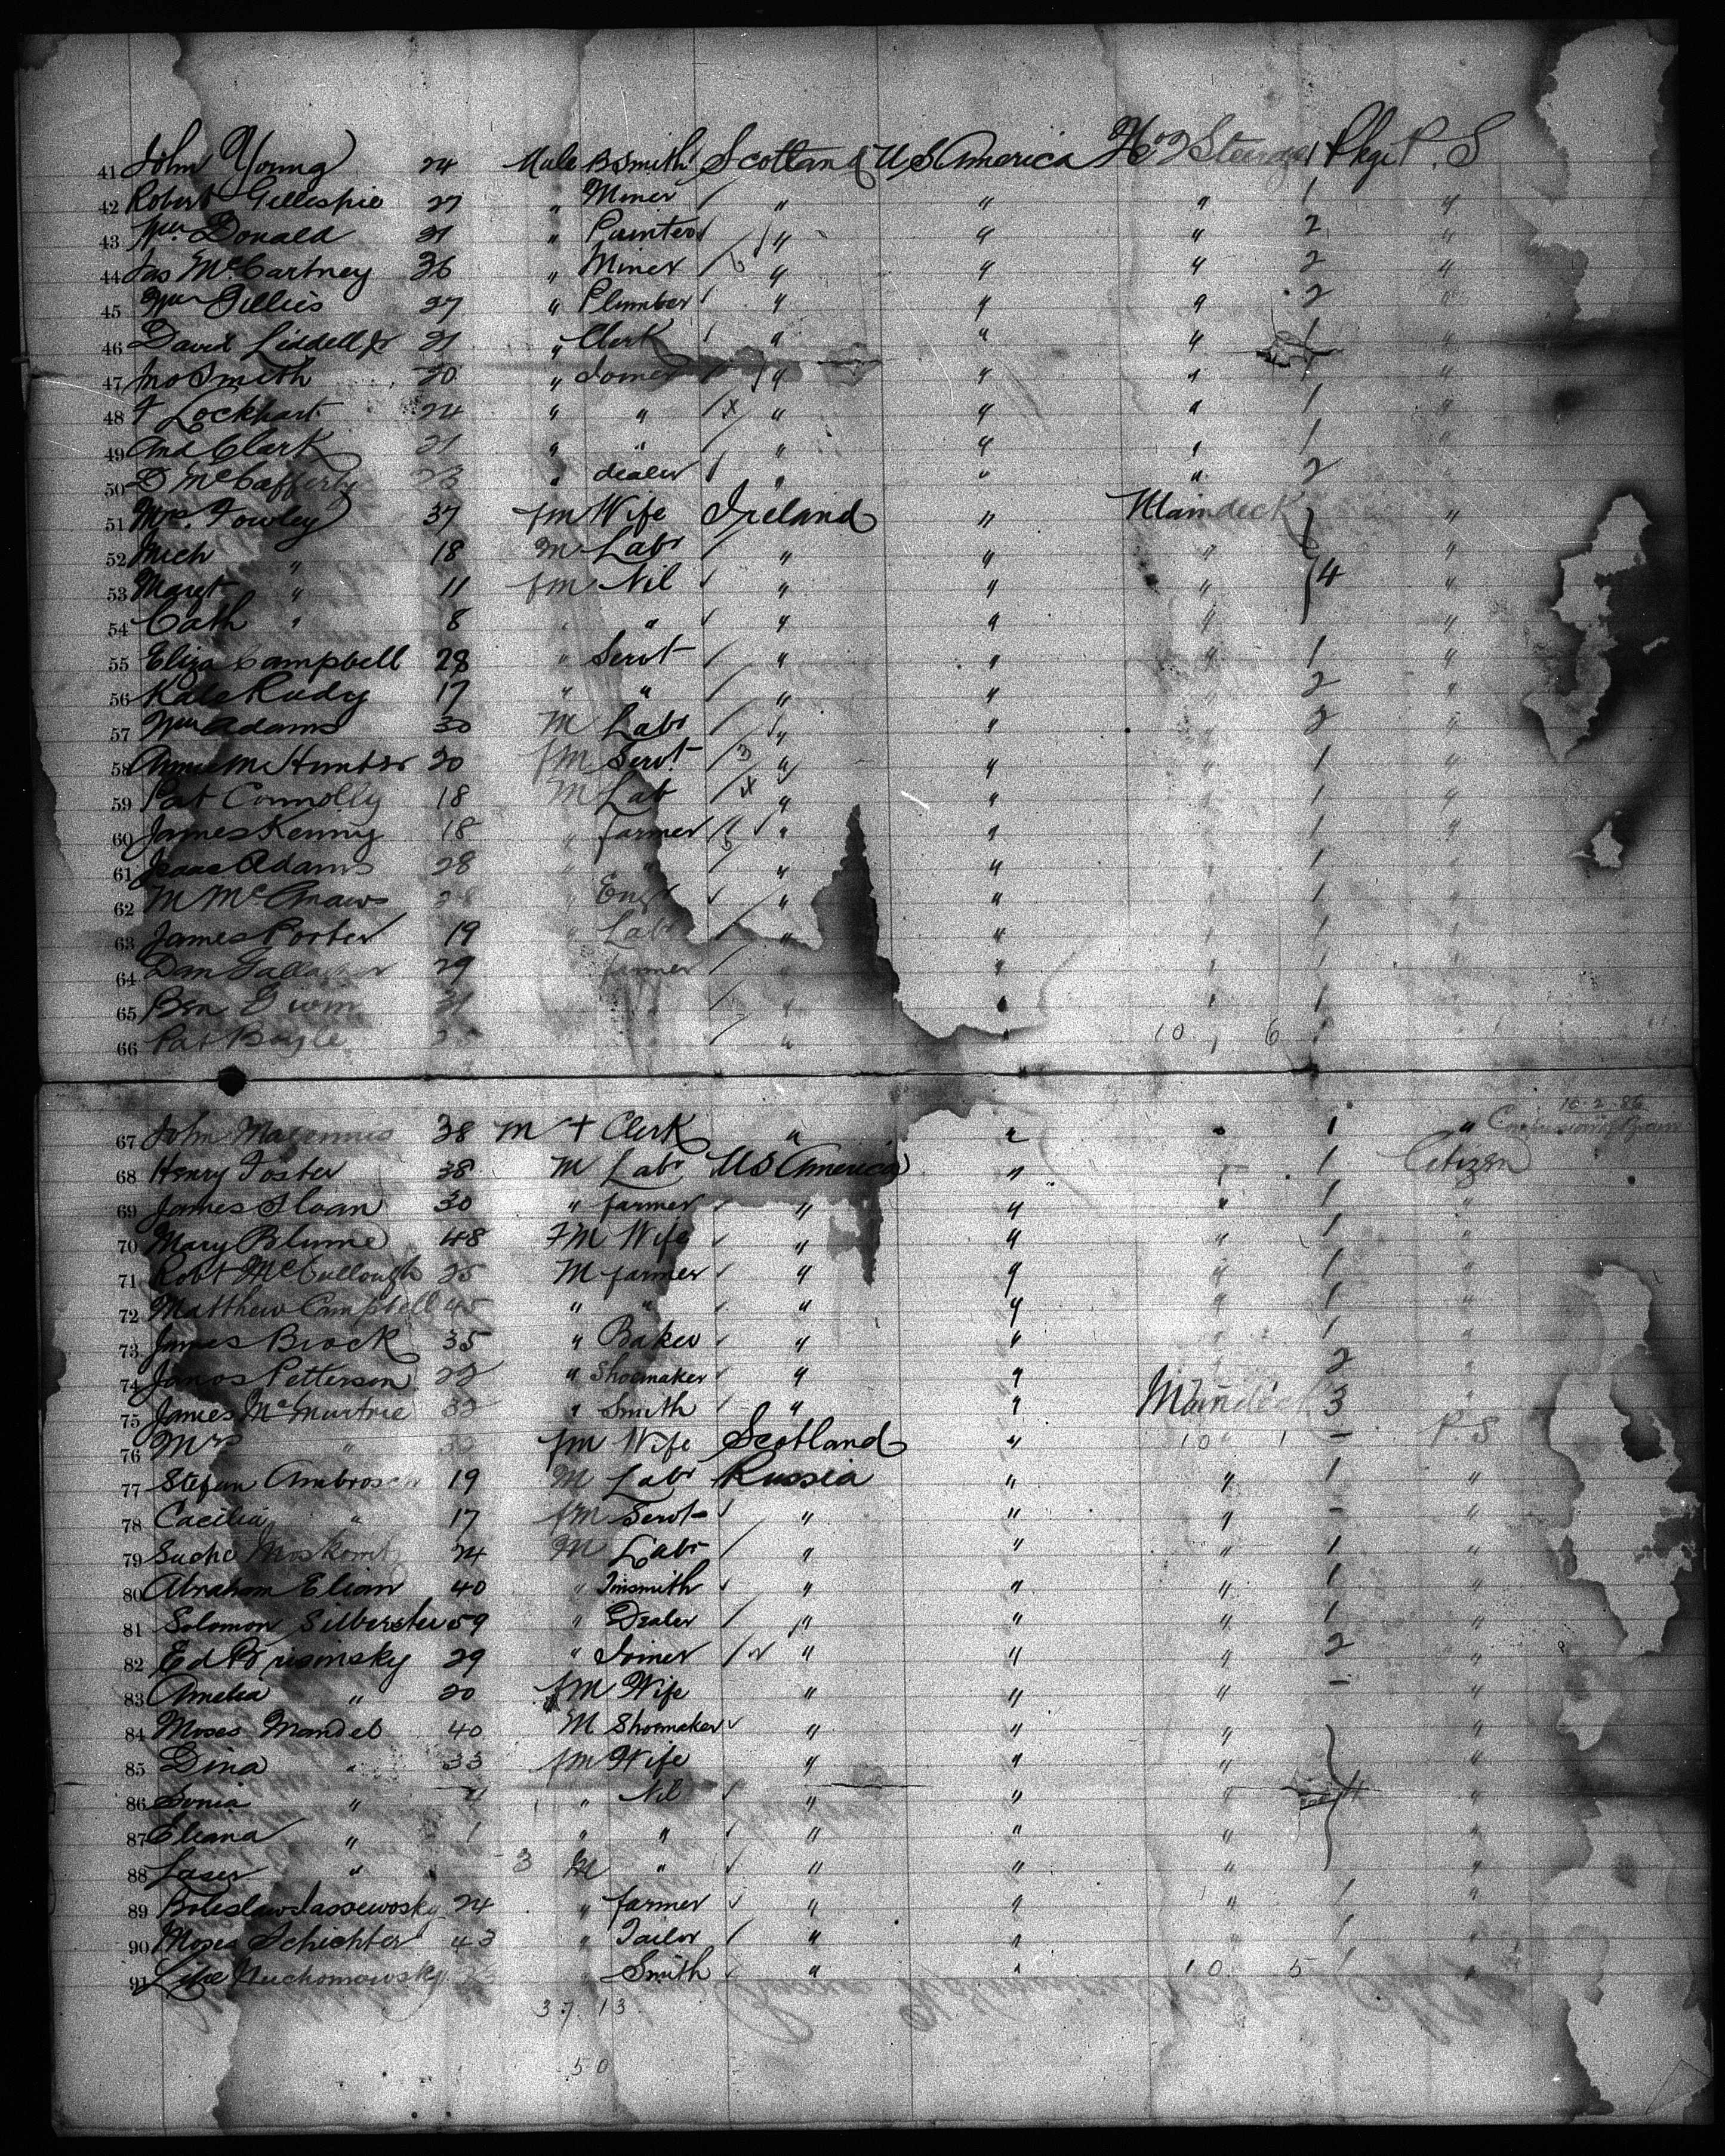 41 John Young 24 Male BSmith Scotland US America No 2 Steerage 1 Pkge P. S
42 Robert Gillespie 27 " Miner / " " " 1 "
43 Wm Donald 21 " Painter / " " " 2 "
44 Jas McCartney 36 " Miner / " " " 2 "
45 Wm Gillies 27 " Plumber / " " " 2 "
46 David Liddell Jr 21 " Clerk / " " " 1 "
47 Jno Smith 20 " Joiner / " " " 1 "
48 Lockhart 24 " " / x " " " 1 "
49 And Clark 21 " " / " " " 1 "
50 D McCafferty 23 " dealer / " " " 2 "
51 Mrs. Towley 37 fm Wife Ireland " Maindeck "
52 Mich " 18 M Labr / " " " "
53 Margt " 11 fm Nil / " " " 4 "
54 Cath " 8 " " / " " " "
55 Eliza Campbell 28 " Servt / " " " 1 "
56 Kate Rudy 17 " " / " " " 2 "
57 Wm Adams 30 M Labr / " " " 2 "
58 Annie M Hunter 20 fm Servt / 3 " " " 1 "
59 Pat Connolly 18 M Lab / x " " " 1 "
60 James Kenny 18 " farmer / " " " 1 "
61 Isaac Adams 28 " " / " " " 1 "
62 M McGraws 28 " Engr / " " " 1 "
63 James Porter 19 " Labr / " " " 1 "
64 Dan Gallagher 29 " farmer / " " " 1 "
65 Ben 21 " / " " " 1
66 Pat Boyle / " " 10 6 1
67 John Magennis 38 m + Clerk " " " 1 " 10-2-86
68 Henry Foster 38 M Labr US America " " 1 Citizen
69 James Sloan 30 " farmer / " " " 1 "
70 Mary Blume 48 FM Wife / " " " 1 "
71 Robt McCullough 25 M farmer / " " " 1 "
72 Matthew Campbell 45 " " / " " " 1 "
73 James Brock 35 " Baker / " " " 1 "
74 James Petterson 22 " Shoemaker / " " 2 "
75 James McMurtrie 32 " Smith / " " Maindeck 3 "
76 Mrs " 32 fm Wife Scotland " 10 1 - P. S
77 Stefan Ambrosch 19 M Labr Russia " " 1 "
78 Cacilia " 17 fm Servt / " " " - "
79 Suche Moskowitz 24 M Labr / " " " 1 "
80 Abraham Elian 40 " Tinsmith / " " " 1 "
81 Solomon Silberstei 59 " Dealer / " " " 1 "
82 Ed Brisinsky 29 " Joiner / " " " 2 "
83 Amelia " 20 fm Wife " " " - "
84 Moses Mandel 40 M Shoemaker / " " " "
85 Dina " 33 fm Wife " " " "
86 Sonia " 4 " Nil / " " " 4 "
87 Eleana " 1 " " / " " " "
88 Laser " 3 M " / " " " "
89 Boleslaw Jassewosky 24 " farmer / " " " 1 "
90 Moses Schichter 43 " Tailor / " " " 1 "
91 Nuchomowsky " Smith / " " 10 5 1 "
37 13
50